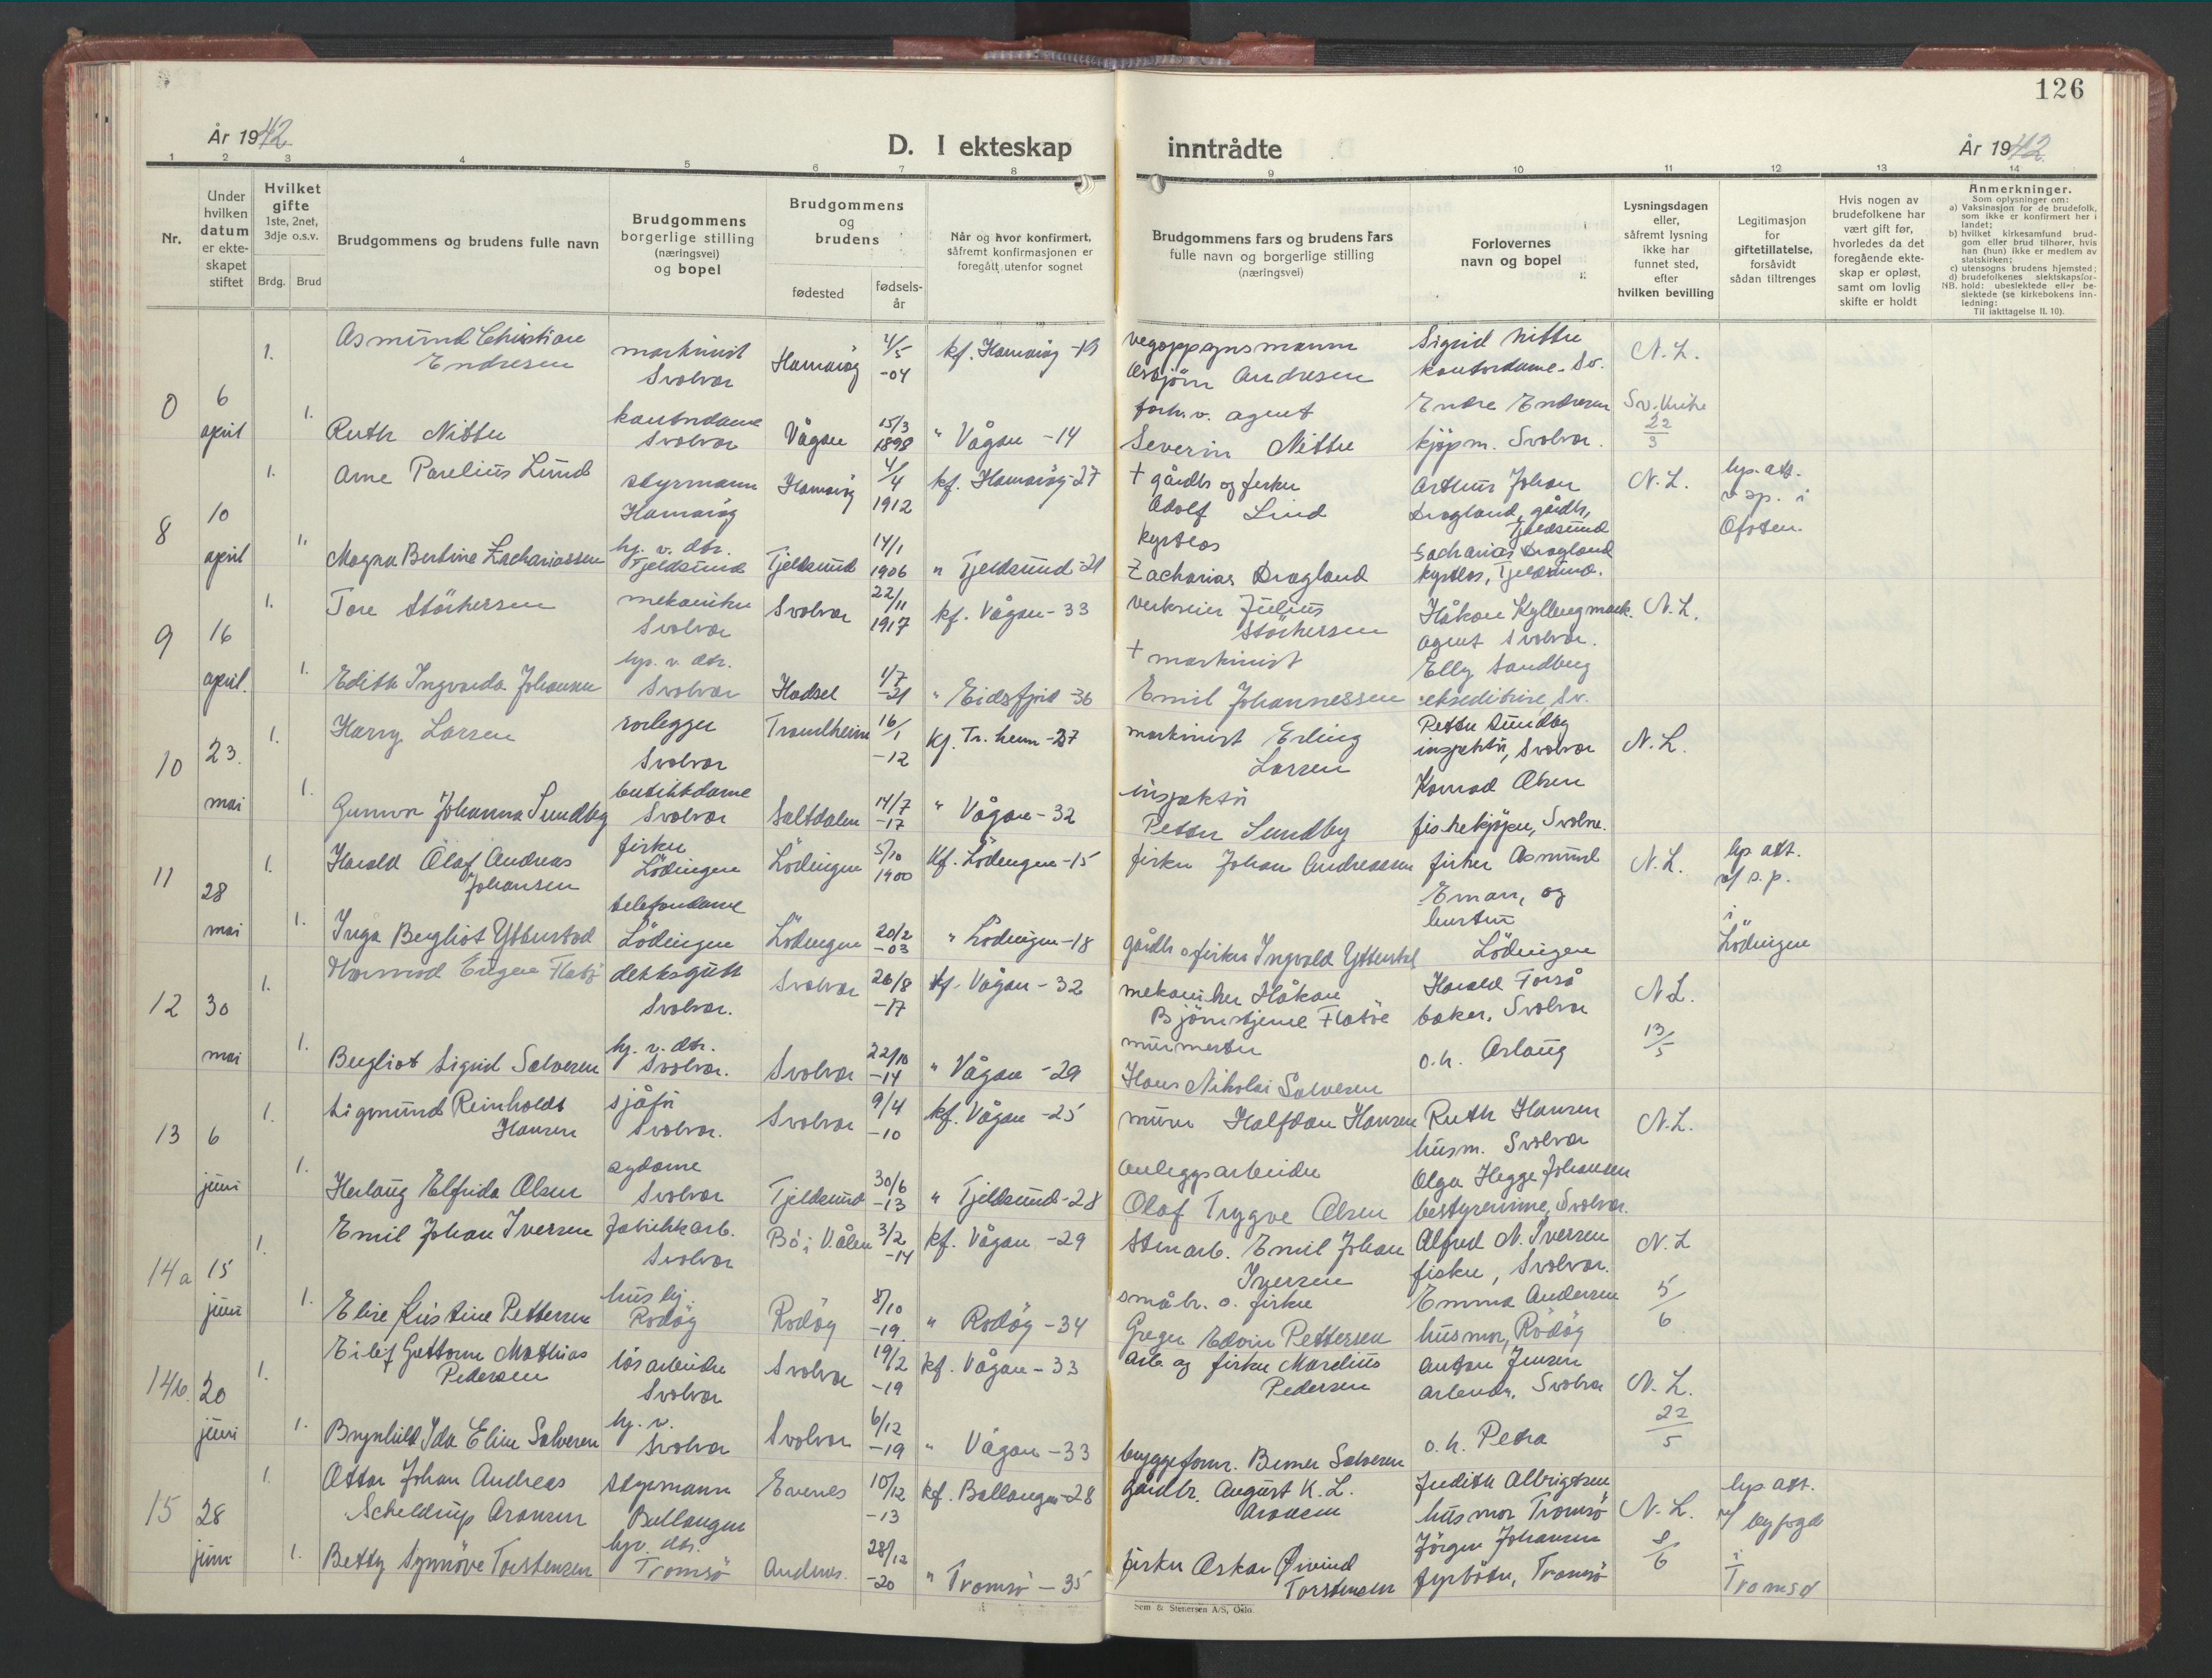 126
År 1942
D. I ekteskap inntrådte
År 1942
1 2 3 4 5 6 7 8 9 10 11 12 13 14
Nr.
Under hvilken datum er ekteskapet stiftet
Hvilket gifte
1ste, 2net, 3dje o.s.v.
Brdg. Brud
Brudgommens og brudens fulle navn
Brudgommens borgerlige stilling (næringsvei) og bopel
Brudgommens og brudens
fødested
fødselsår
Når og hvor konfirmert, såfremt konfirmasjonen er foregått utenfor sognet
Brudgommens fars og brudens fars fulle navn og borgerlige stilling (næringsvei)
Forlovernes navn og bopel
Lysningsdagen eller, såfremt lysning ikke har funnet sted, efter hvilken bevilling
Legitimasjon for giftetillatelse, forsåvidt sådan tiltrenges
Hvis nogen av brudefolkene har vært gift før, hvorledes da det foregående ekteskap er opløst, samt om lovlig skifte er holdt
Anmerkninger.
Som oplysninger om:
a) Vaksinasjon for de brudefolk, som ikke er konfirmert her i landet;
b) hvilket kirkesamfund brudgom eller brud tilhører, hvis han (hun) ikke er medlem av statskirken;
c) utensogns brudens hjemsted;
d) brudefolkenes slektskapsforhold: ubeslektede eller beslektede (se kirkebokens innledning:
NB.
Til iakttagelse II. 10).
6 april
1. Asmund Christian Endresen maskinist Svolvær Hamarøy 4/5 -04 kf. Hamarøy -19 vegoppsynsmann Asbjörn Andresen Sigrid kontordame. Sv. N. L.
1. Ruth kontordame Svolvær Vågan 15/3 1898 " Vågan -14 agent Severin Endre Endresen kjøpm. Svolvær. 22/3
8 10 april
1. Arne Parelius Lund styrmann Hamarøy Hamarøy 4/4 1912 kf. Hamarøy -27 + gårdbr og fisker Adolf Lind Arthur Johan Dragland, gårdbr, Tjeldsund N. L. lys. att. v sp. i Ofoten.
1. Magna Bertine Zachariassen hj. v. dtr. Tjeldsund Tjeldsund 14/1 1906 " Tjeldsund -21 kystlos Zacharias Dragland Sacharias Dragland kystlos, Tjeldsund.
9 16 april.
1. Tore Störkersen mekaniker Svolvær Svolvær 22/11 1917 kf. Vågan -33 verkseier Julius Störkersen Håkon Kyllingmark. agent Svolvær. N. L.
1. Edith Ingvarda Johansen hjv. v. dtr. Svolvær Hadsel 1/7 -21 " Eidsfjord -36 + maskinist Emil Johannessen Elly Sandberg ekspeditrise, Sv.
10 23. mai
1. Harry Larsen rørlegger Svolvær Trondheim 16/1 -12 Kf. Tr. heim -27 maskinist Erling Larsen Petter Sundby inspektör, Svolvær N. L.
1. Gunvor Johanna Sundby butikkdame Svolvær Saltdalen 14/7 -17 " Vågan -32 inspektör Petter Sundby Konrad Olsen fiskekjøper, Svolvær.
11 28 mai
1. Harald Olaf Andreas Johansen fisker Lödingen Lödingen 5/10 1900 Kf. Lödingen -15 fisker Johan Andreassen fisker Asmund Emar, og hustru Lödingen N. L. lys. att. v/ s.p. i Lödingen
1. Inga Bergliot Ytterstad telefondame Lödingen Lödingen 20/2 -03 " Lödingen -18 gårdbr o fisker Ingvald Ytterstad
12 30 mai
1. Normod Eugen Flatø dekksgutt Svolvær. Svolvær 26/8 -17 kf. Vågan -32 mekaniker Håkon Bjørnstjerne Flatøe Harald Forså baker, Svolvær N. L.
1. Bergliot Sigrid Salvesen hj. v. dtr. Svolvær. Svolvær 22/10 -14 " Vågan -29 murmester Hans Nikolai Salvesen o. h. Aslaug 13/5
13 6 juni
1. Sigmund Reinholdt Hansen sjåfør Svolvær. Svolvær 9/4 -10 kf. Vågan -25 murer Halfdan Hansen Ruth Hansen husm. Svolvær N. L.
1. Herlaug Elfrida Olsen sydame Svolvær Tjeldsund 30/6 -13 " Tjeldsund -28 anleggsarbeider Olaf Trygve Olsen Olga Hegge Johansen bestyrerinne, Svolvær.
14a 15 juni
1. Emil Johan Iversen fabrikkarb. Svolvær Bø i V.ålen 3/2 -14 kf. Vågan -29 stenarb. Emil Johan Iversen Alfred N. Iversen fisker, Svolvær. N. L
1. Elise Kristine Pettersen hus hj. Rodøy Rodøy 8/10 -19. " Rodøy -34 småbr. o. fisker Greger Edvin Pettersen Emma Andersen husmor, Rödöy 5/6
14b. 20 juni
1. Eilef Guttorm Mathias Pedersen løsarbeider Svolvær Svolvær 19/2 -19 kf. Vågan -33 arb og fisker Marelius Pedersen Anton Jensen arbeider, Svolvær N. L.
1. Brynhild Ida Eline Salvesen hj. v. Svolvær Svolvær 6/12 -19 " Vågan -33 byggeform. Berner Salvesen o. h. Petra 22/5
15 28 juni
1. Ottar Johan Andreas Scheldrup Aronsen styrmann Ballangen Evenes 10/12 -13 kf. Ballangen -28 gårdbr. August K. L. Aronsen Judith Albrigtsen husmor Tromsö N. L. lys. att. v/ byfogd i Tromsö
1. Betty Synnöve Torstensen hjv. dtr. Tromsö Andenes. 28/12 -20 " Tromsö -35 fisker Oskar Øivind Torstensen Jörgen Johansen fyrbøter, Tromsö 8/6
Sem & Stenersen A/S, Oslo.